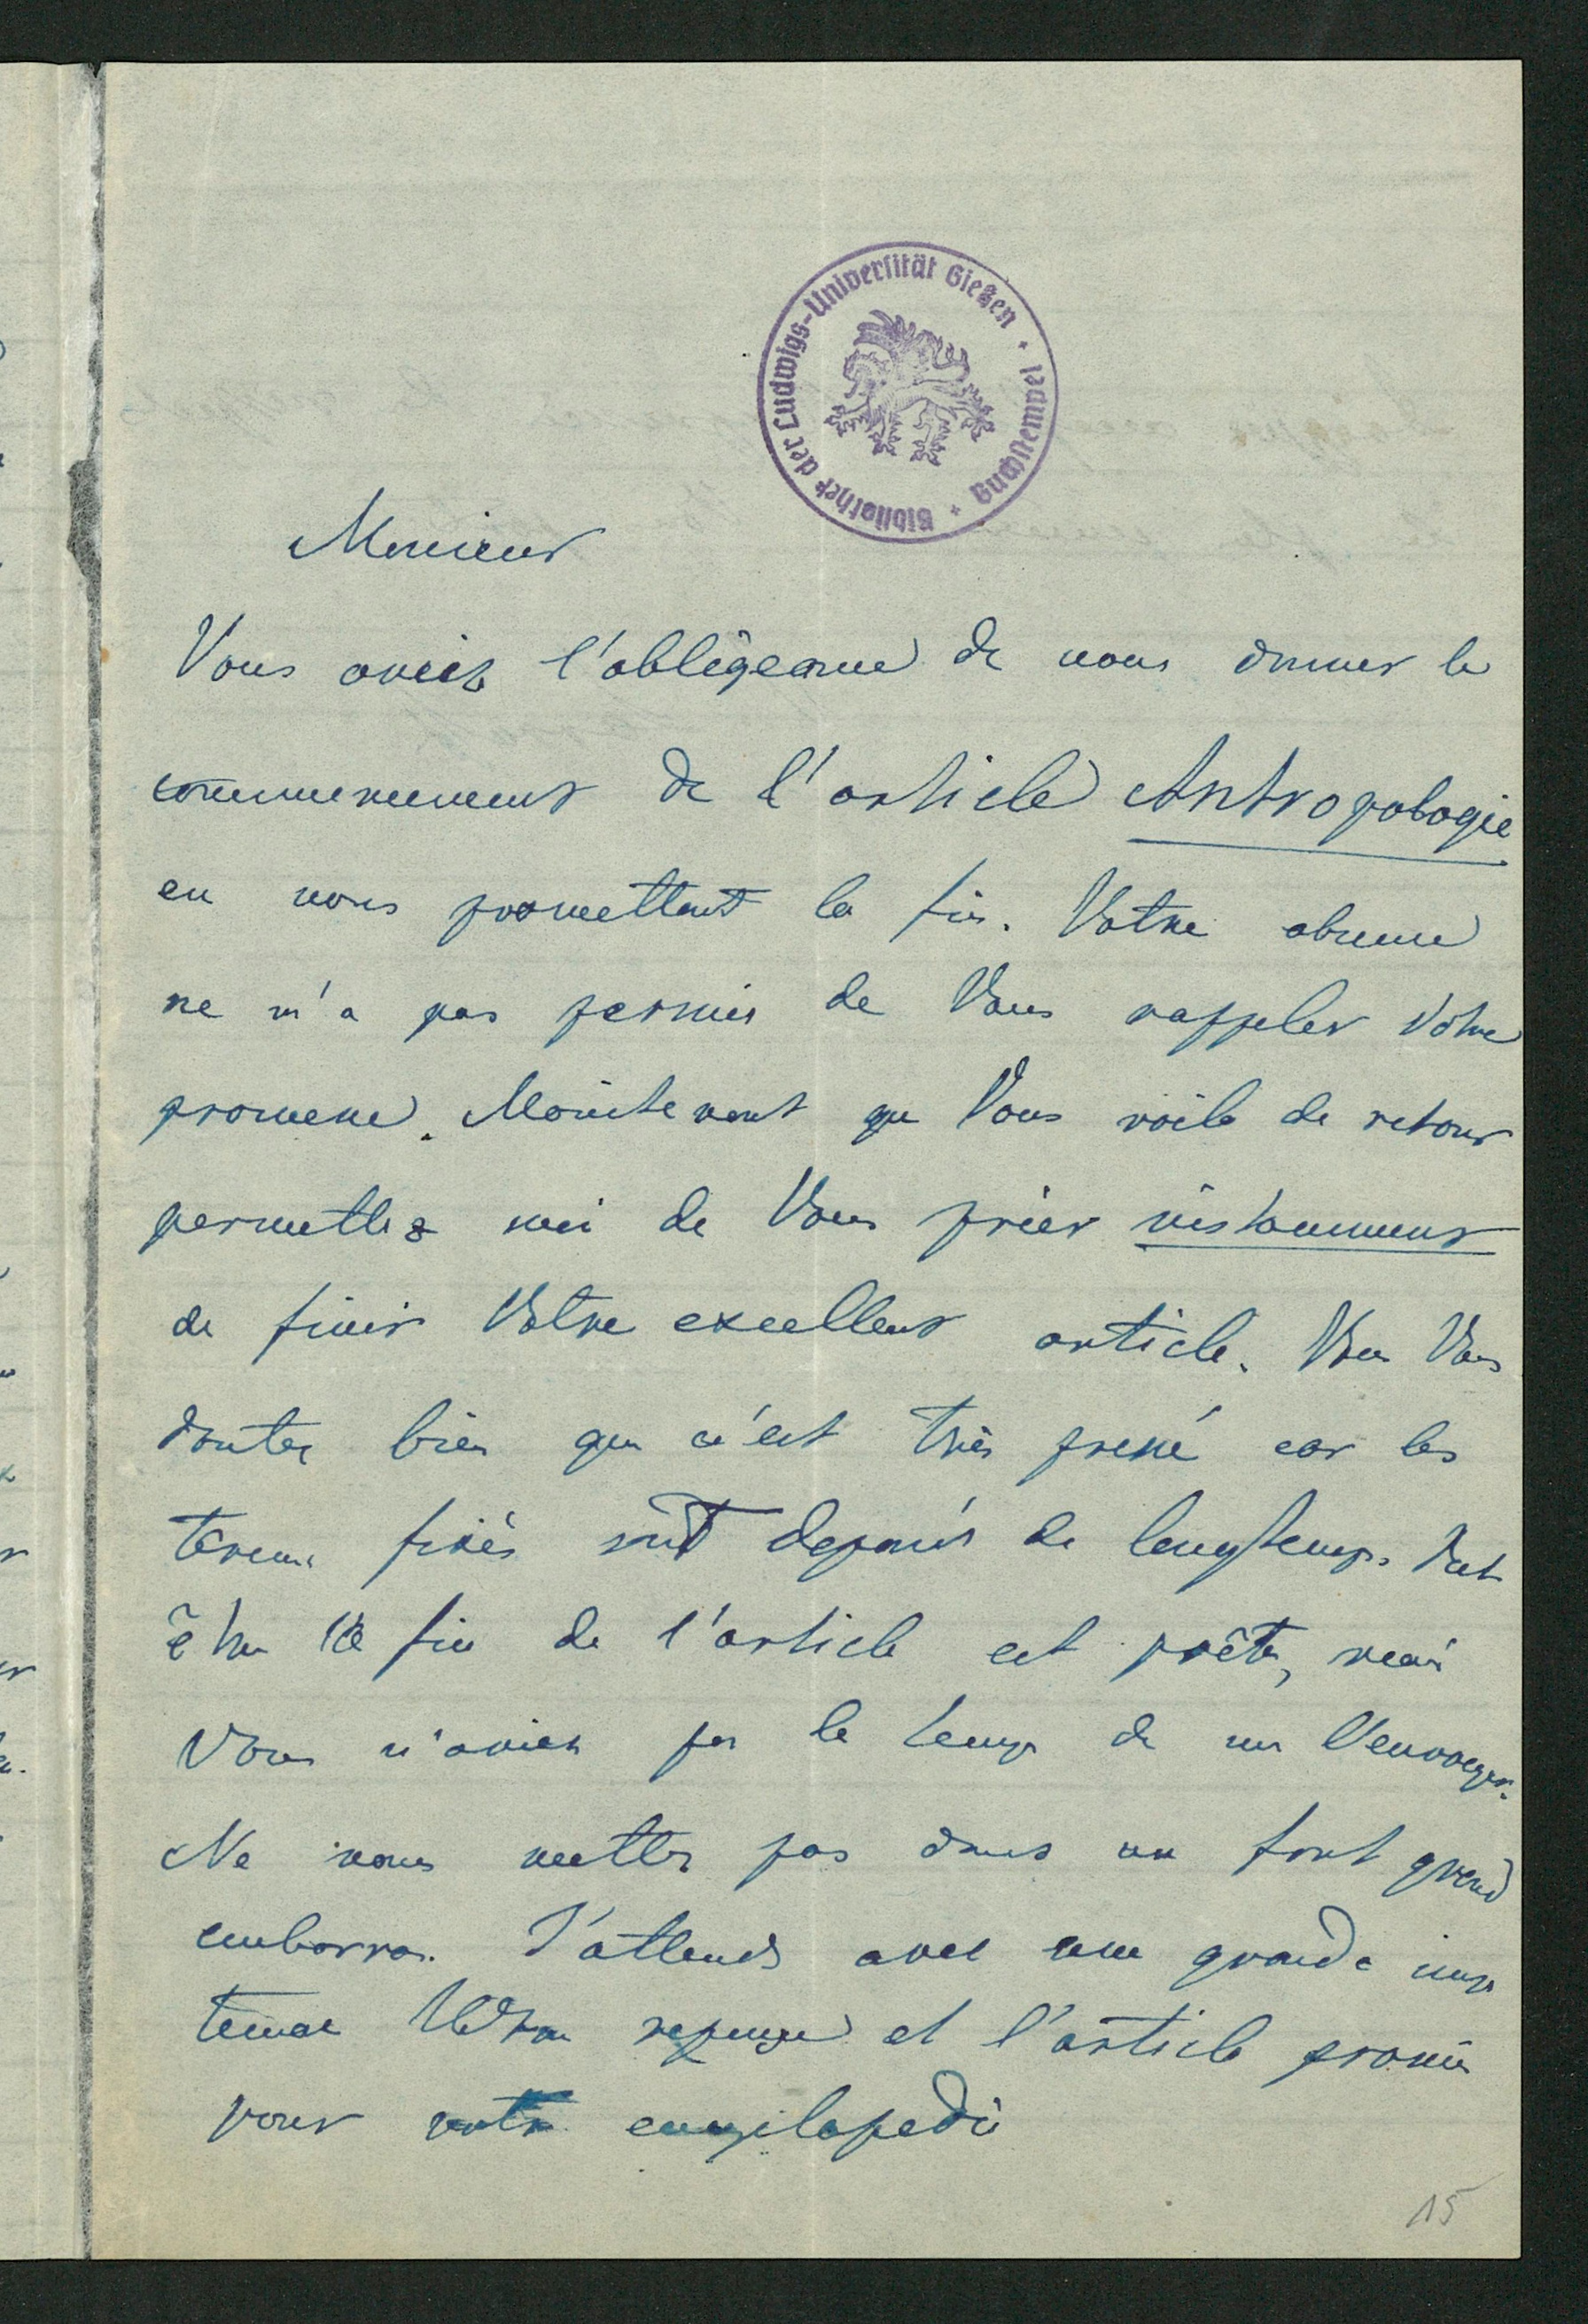 Bibliothek der Ludwigs-Universität Gießen * Buchstempel *
Monsieur
Vous aviez l'obligeance de nous donner le
commencement de l'article Antropologie
en nous promettant la fin. Votre absence
ne m'a pas permis de Vous rappeler Votre
promesse. Maintenant que Vous voila de retour
permettez moi de Vous prier instamment
de finir Votre excellent article. Vous Vous
doutez bien que c'est très pressé car les
termes fixés sont depassés de longtemps. Peut
être la fin de l'article est prête, mais
Vous n'aviez pas le temps de nous l'envoyer.
Ne nous mettez pas dans un tout grand
embarras. J'attends avec une grande impa
tience Votre reponse et l'article promis
pour notre encyclopedie
15